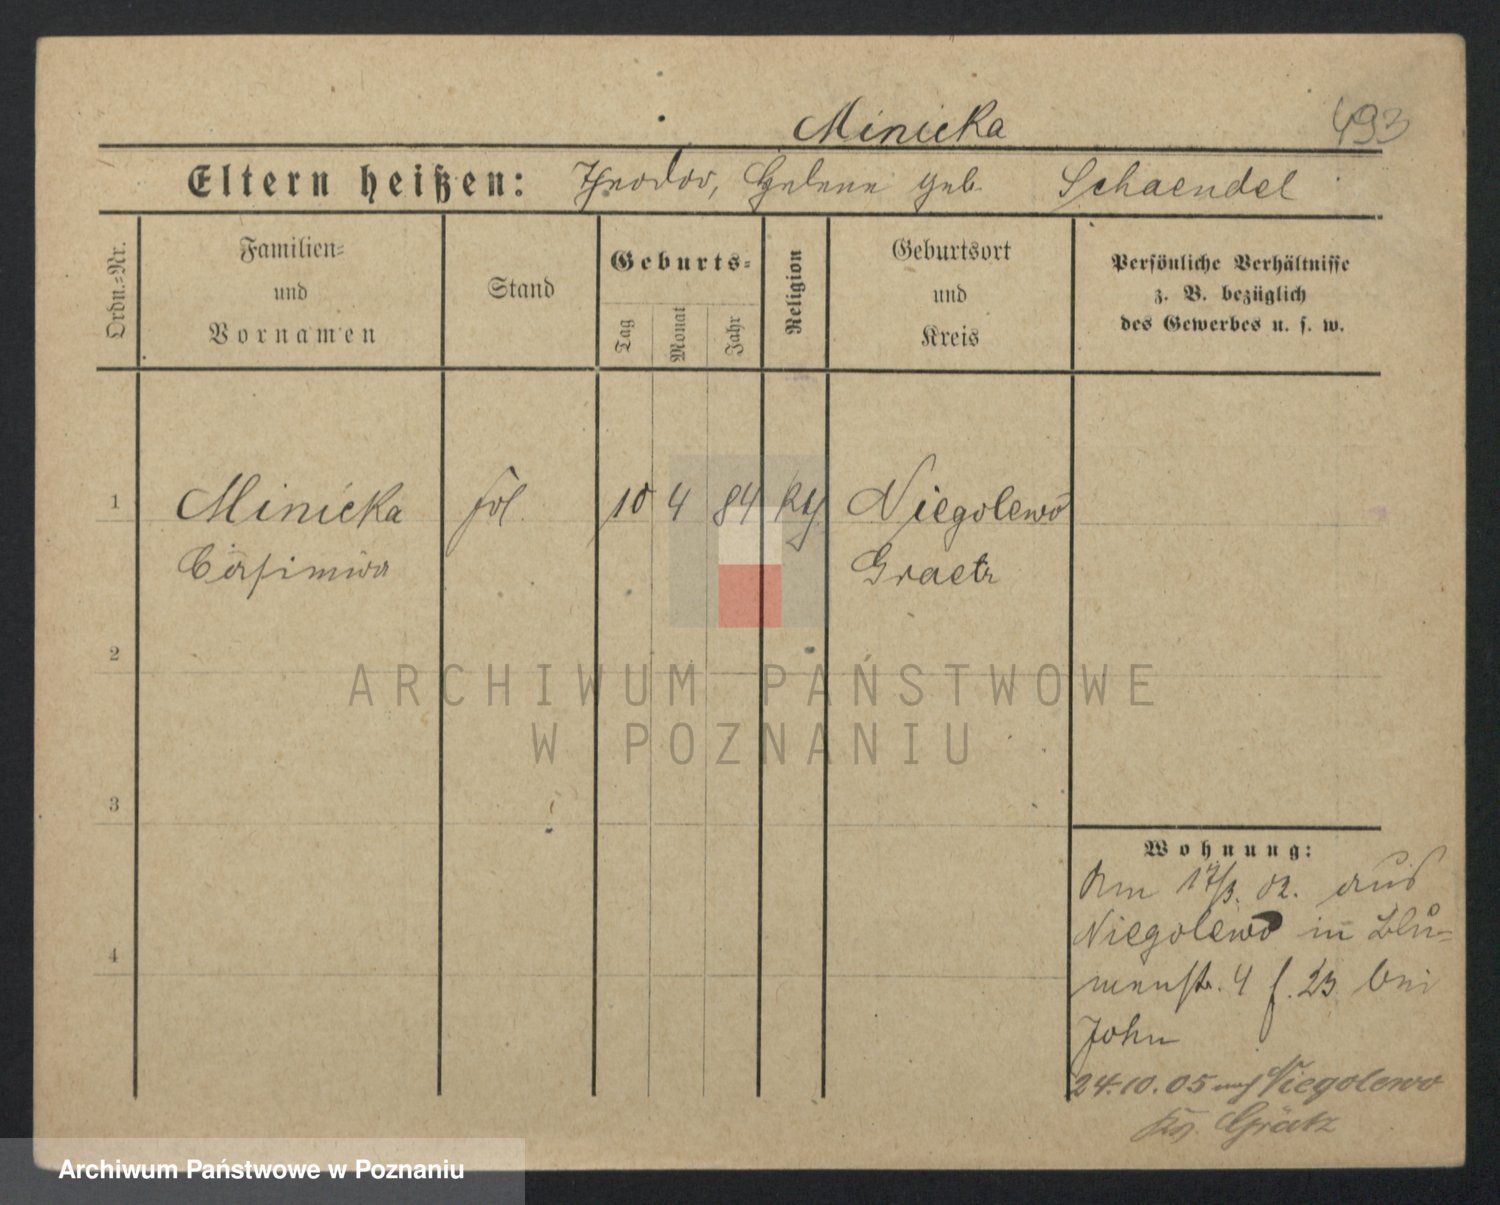 Minicka 493
Eltern heißen: Theodor, Helene geb. Schaendel
Ordn.=Nr.
Familien=
und
Vornamen
Stand
Geburts=
Tag
Monat
Jahr
Religion
Geburtsort
und
Kreis
Persönliche Verhältnisse
z. B. bezüglich
des Gewerbes u. s. w.
1 Minicka 10 4 84 kth Niegolewo
Casimira Graetz
2
3
4
Wohnung:
Am 17/3. 02. aus
Niegolewo in Blu=
menstr. 4 f. 23 bei
John
24.10.05 nach Niegolewo
Kr. Grätz
ARCHIWUM PAŃSTWOWE
W POZNANIU
Archiwum Państwowe w Poznaniu